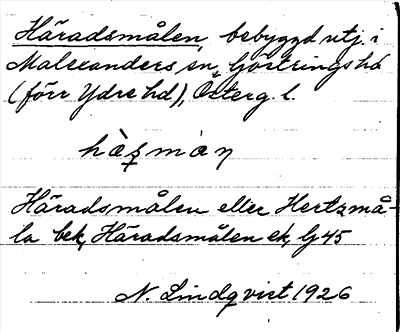 Häradsmålen, bebyggd utj. i
Malexanders sn, Göstrings hd
(förr Ydre hd), Österg. l.
Häradsmålen eller Hertzmå-
la bek, Häradsmålen ek, Gj 45
N. Lindqvist 1926